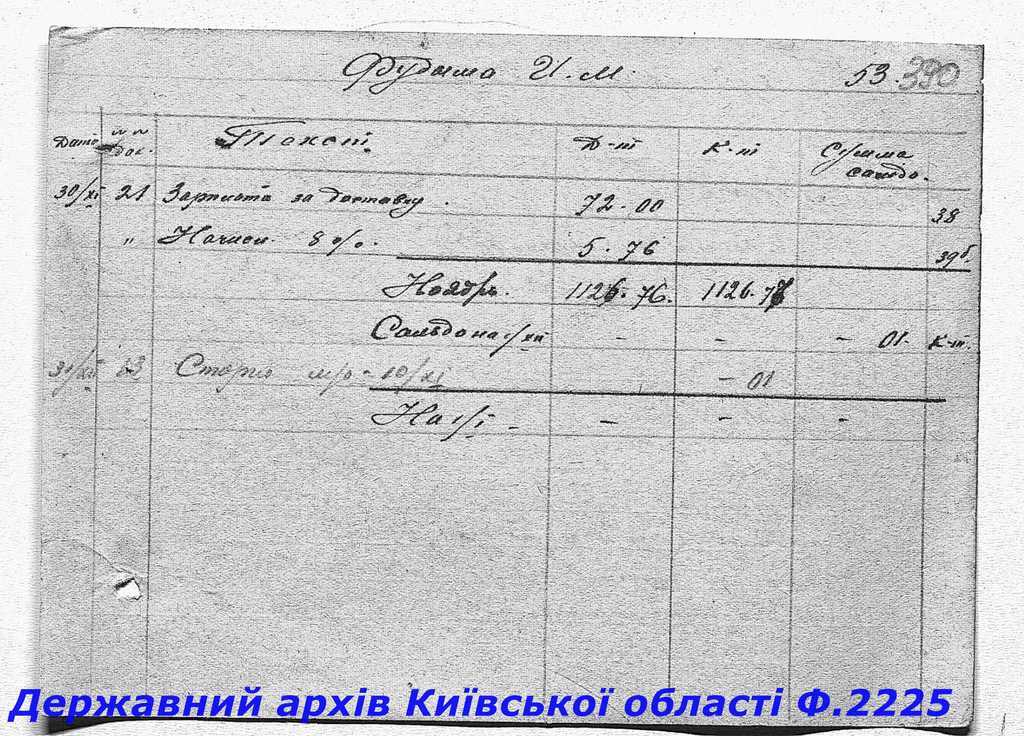 Фудыма И. М. 53. 390
Дата №№ док. Текст Д-т К-т Сумма сальдо.
30/XI 21 Зарплата за доставку 72-00 38
" Начисл. 8%. 5-76 39б
Ноябрь. 1126-76. 1126-77
Сальдо на 1/XII - - - 01- К-т.
31/XII Сторно - 01
На 1/I - - - -
Державний архів Київської області Ф.2225